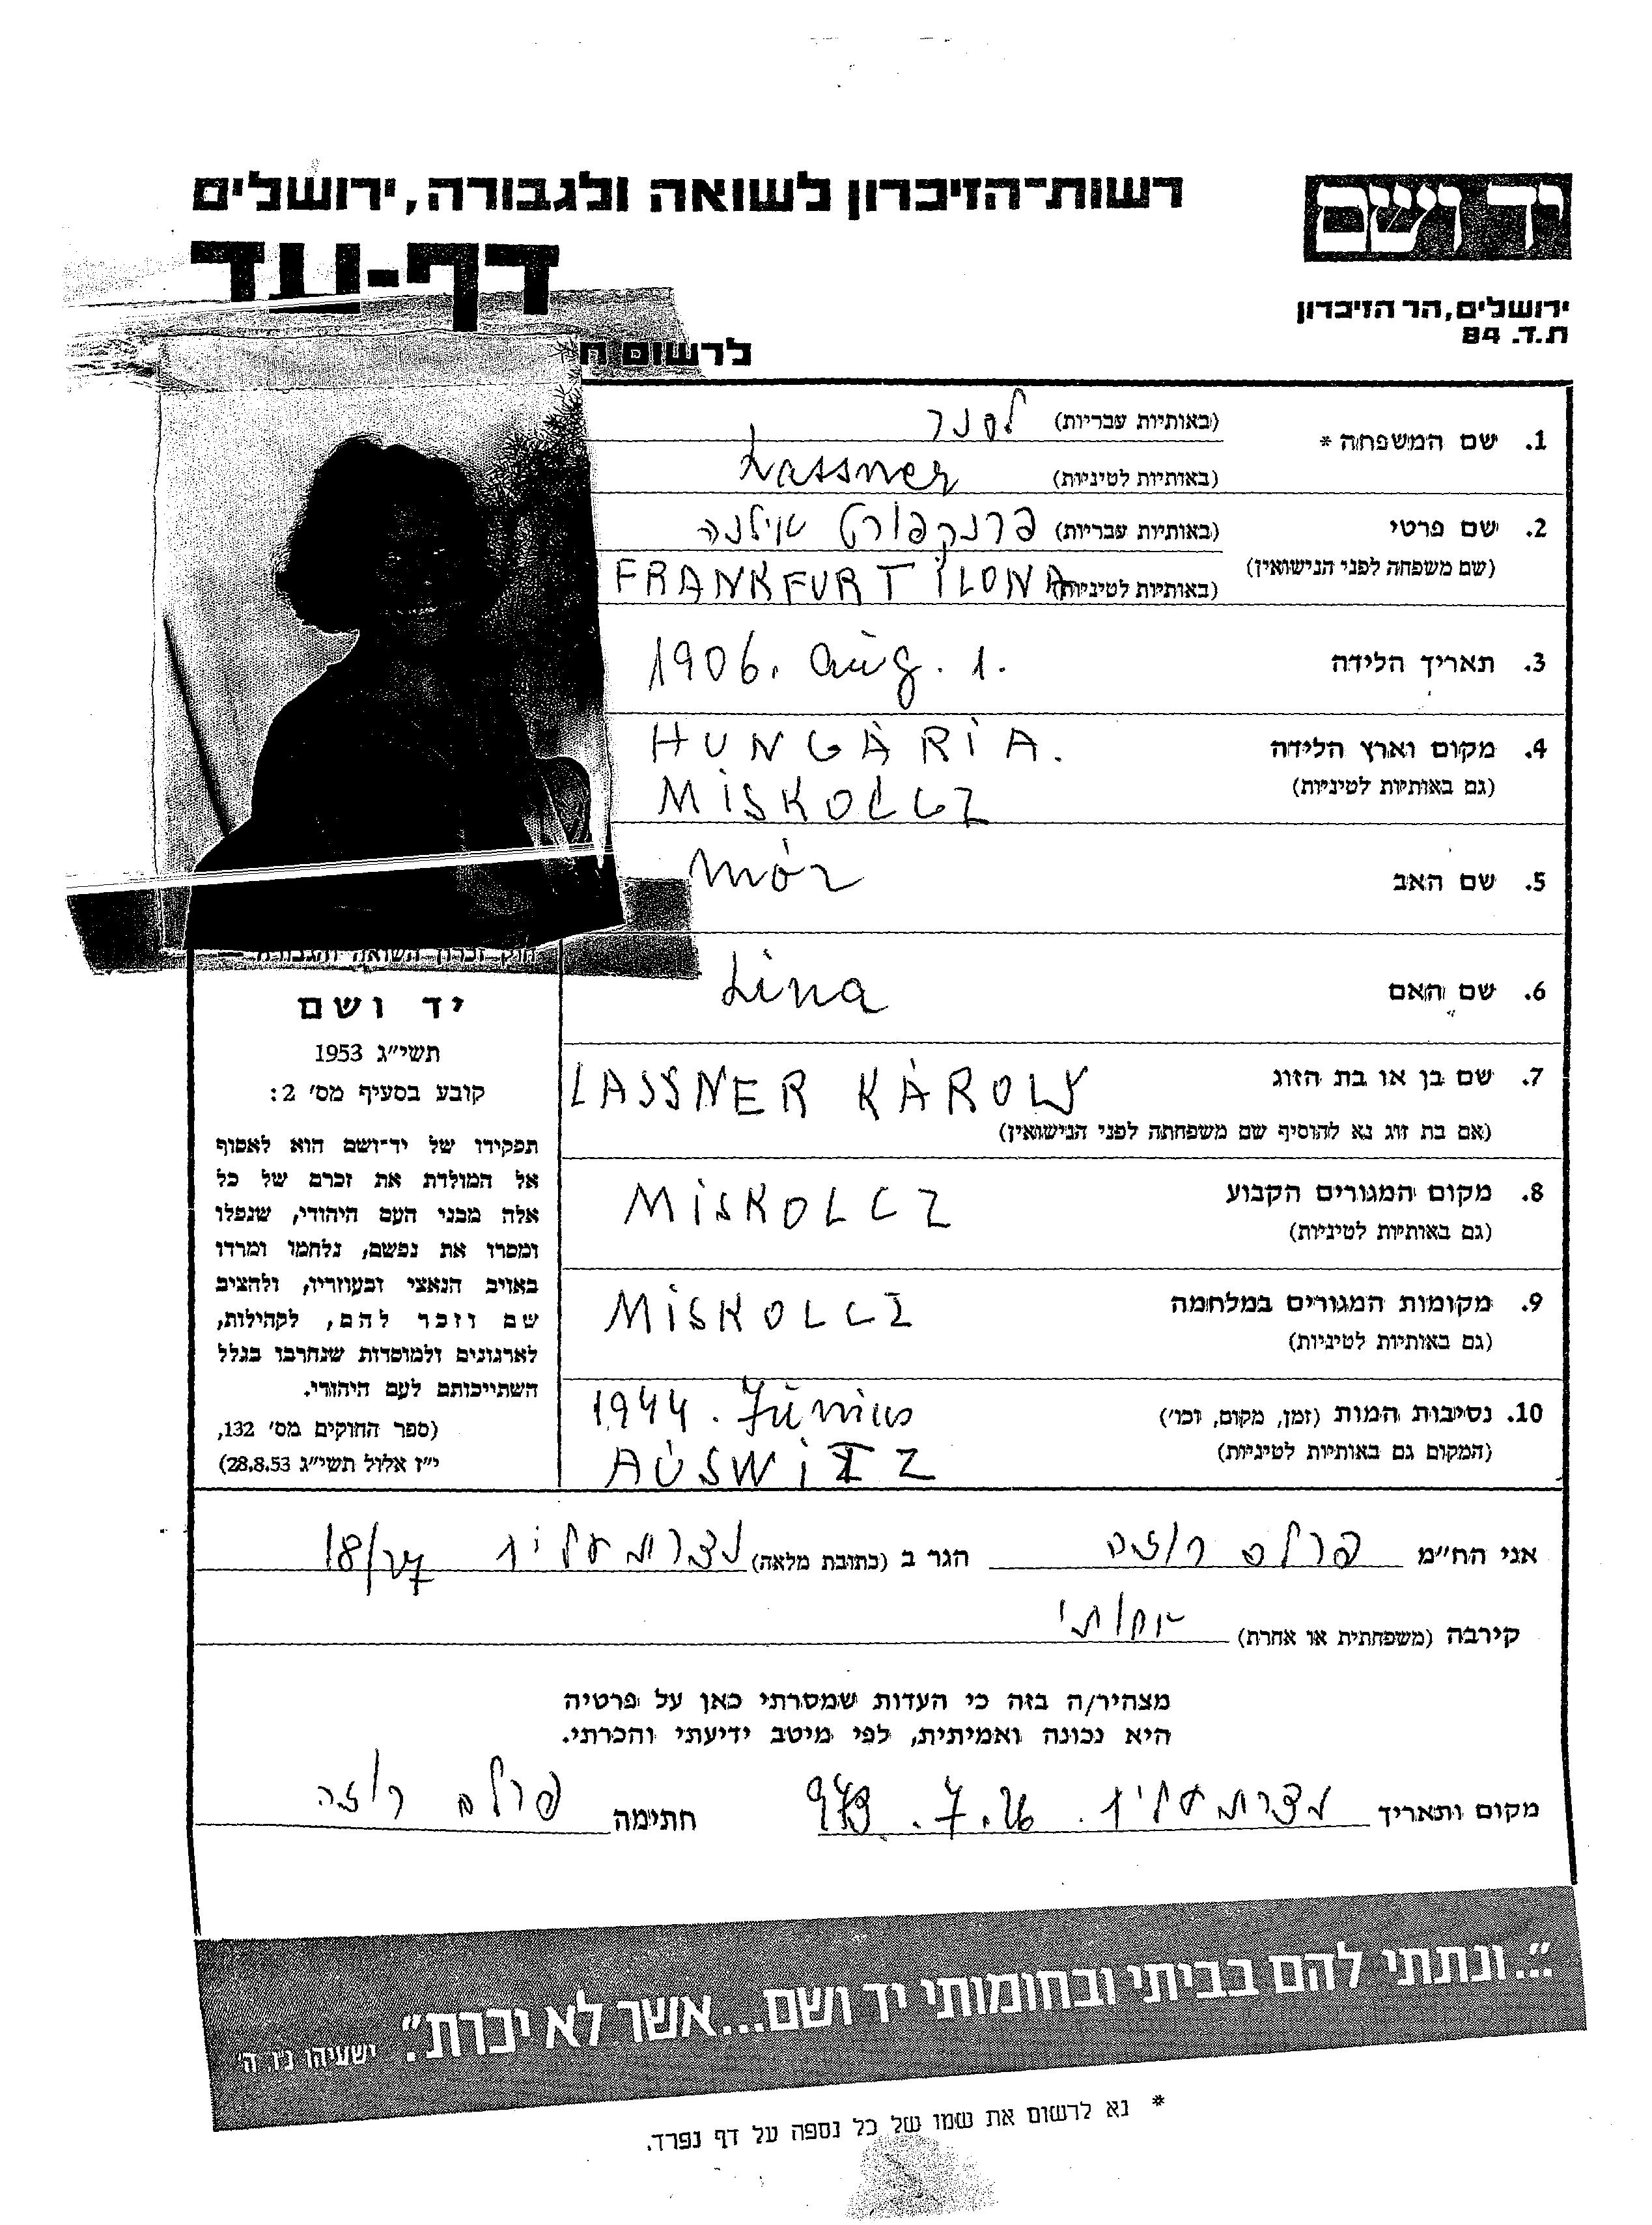 יד ושם
רשות־הזיכרון לשואה ולגבורה, ירושלים
דף-עד
ירושלים, הר הזיכרון
ת.ד. 84
לרשום
1. שם המשפחה *
(באותיות עבריות) לסנר
(באותיות לטיניות) Lassner
2. שם פרטי
(שם משפחה לפני הנישואין)
(באותיות עבריות) פרנקפורט אילנה
(באותיות לטיניות) FRANKFURT ILONA
3. תאריך הלידה 1906. aug. 1.
4. מקום וארץ הלידה HUNGÁRIA.
(גם באותיות לטיניות) MISKOLCZ
5. שם האב Mór
6. שם האם Lina
7. שם בן או בת הזוג LASSNER KÁROLY
(אם בת זוג נא להוסיף שם משפחתה לפני הנישואין)
8. מקום המגורים הקבוע MISKOLCZ
(גם באותיות לטיניות)
9. מקומות המגורים במלחמה MISKOLCZ
(גם באותיות לטיניות)
10. נסיבות המות (זמן, מקום, וכו') 1944. Június
(המקום גם באותיות לטיניות) AUSWITZ
חוק זכרון השואה והגבורה —
יד ושם
תשי״ג 1953
קובע בסעיף מס׳ 2:
תפקידו של יד־ושם הוא לאסוף
אל המולדת את זכרם של כל
אלה מבני העם היהודי, שנפלו
ומסרו את נפשם, נלחמו ומרדו
באויב הנאצי ובעוזריו, ולהציב
שם וזכר להם, לקהילות,
לארגונים ולמוסדות שנחרבו בגלל
השתייכותם לעם היהודי.
(ספר החוקים מס׳ 132,
י״ז אלול תשי״ג 28.8.53)
אני הח״מ פרלס רוזה הגר ב (כתובת מלאה) נצרת עלית 18/27
קירבה (משפחתית או אחרת) אחותי
מצהיר/ה בזה כי העדות שמסרתי כאן על פרטיה
היא נכונה ואמיתית, לפי מיטב ידיעתי והכרתי.
מקום ותאריך נצרת עלית. 26.7.973 חתימה פרלס רוזה
״...ונתתי להם בביתי ובחומותי יד ושם...אשר לא יכרת״. ישעיהו נ״ו, ה׳
* נא לרשום את שמו של כל נספה על דף נפרד.